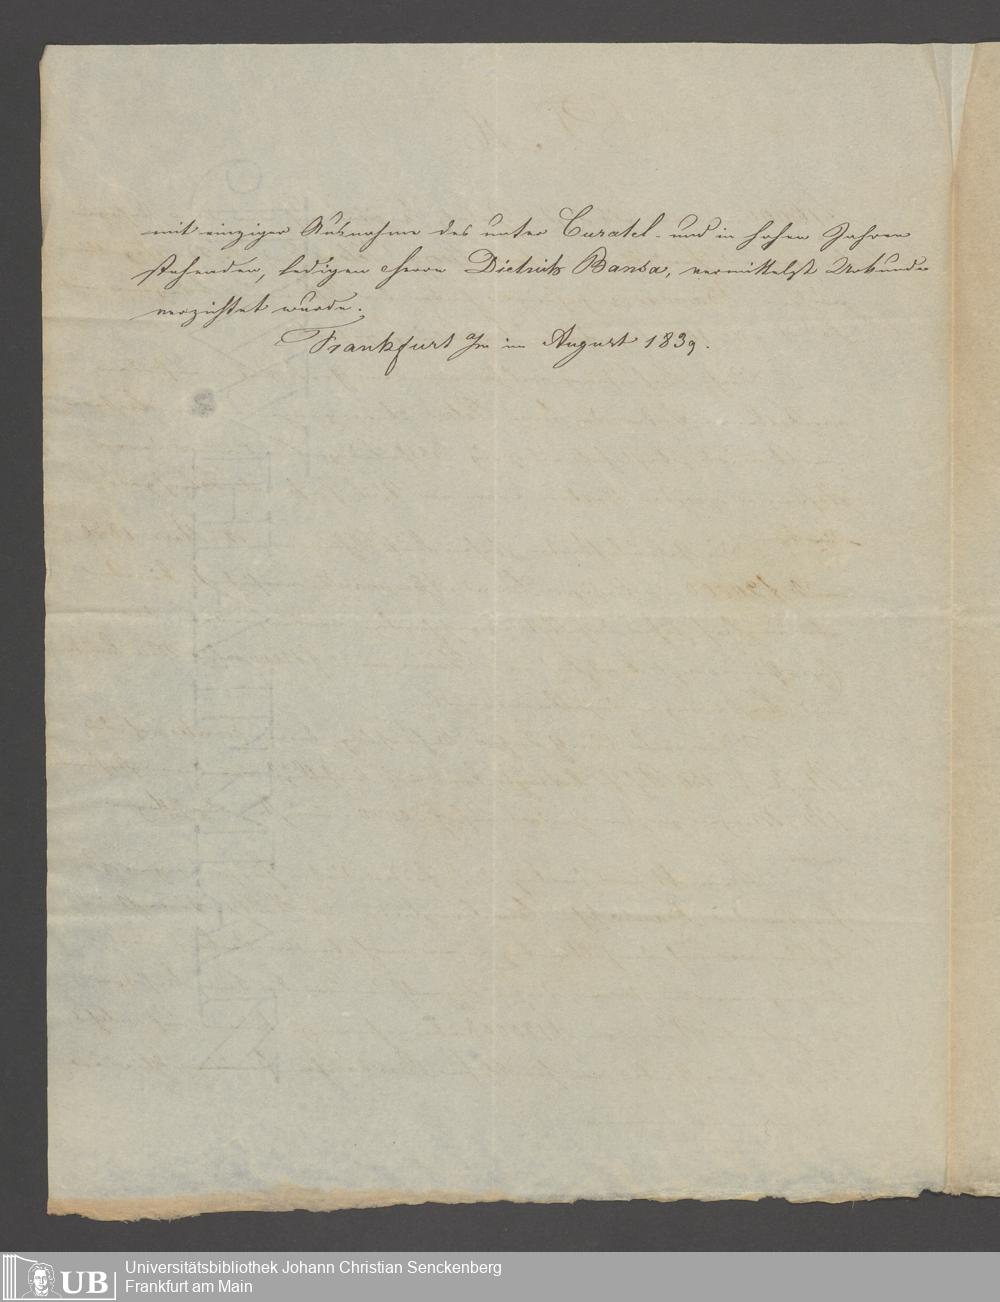 mit einziger Ausnahme des unter Curatel- und in hohen Jahren
stehenden, ledigen Herrn Dietrich Bansa, vermittelst Urkunde
verzichtet wurde.
Frankfurt a/m im August 1839.
UB
Universitätsbibliothek Johann Christian Senckenberg
Frankfurt am Main